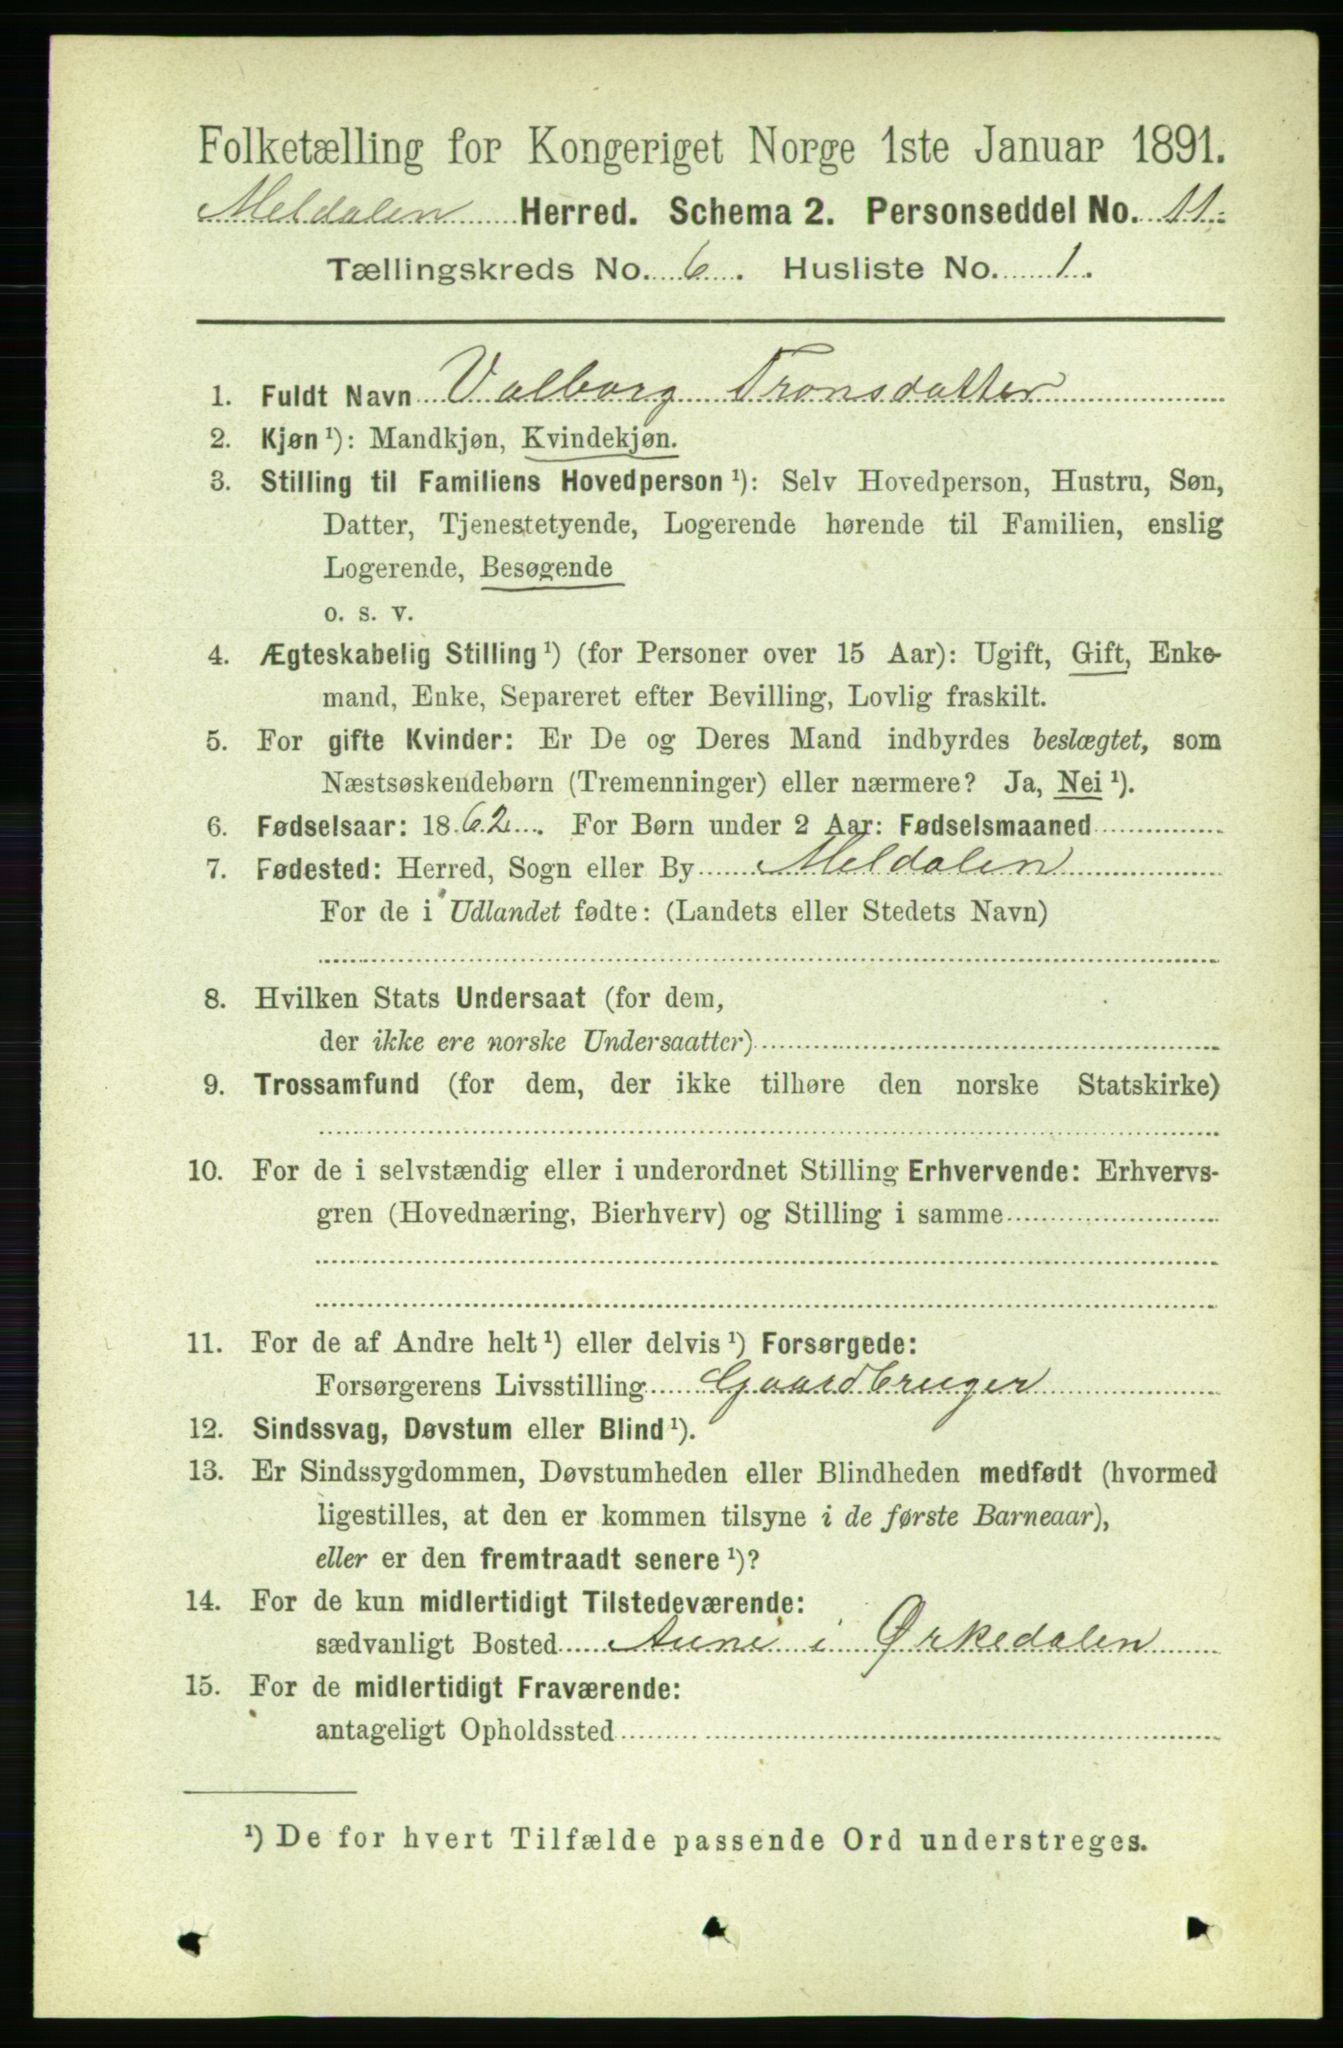 Folketælling for Kongeriget Norge 1ste Januar 1891.
Meldalen Herred. Schema 2. Personseddel No. 11.
Tællingskreds No. 6. Husliste No. 1.
1. Fuldt Navn Valborg Tronsdatter
2. Kjøn ¹): Mandkjøn, Kvindekjøn.
3. Stilling til Familiens Hovedperson ¹): Selv Hovedperson, Hustru, Søn,
Datter, Tjenestetyende, Logerende hørende til Familien, enslig
Logerende, Besøgende
o. s. v.
4. Ægteskabelig Stilling ¹) (for Personer over 15 Aar): Ugift, Gift, Enke-
mand, Enke, Separeret efter Bevilling, Lovlig fraskilt.
5. For gifte Kvinder: Er De og Deres Mand indbyrdes beslægtet, som
Næstsøskendebørn (Tremenninger) eller nærmere? Ja, Nei ¹).
6. Fødselsaar: 1862. For Børn under 2 Aar: Fødselsmaaned
7. Fødested: Herred, Sogn eller By Meldalen
For de i Udlandet fødte: (Landets eller Stedets Navn)
8. Hvilken Stats Undersaat (for dem,
der ikke ere norske Undersaatter)
9. Trossamfund (for dem, der ikke tilhøre den norske Statskirke)
10. For de i selvstændig eller i underordnet Stilling Erhvervende: Erhvervs-
gren (Hovednæring, Bierhverv) og Stilling i samme
11. For de af Andre helt ¹) eller delvis ¹) Forsørgede:
Forsørgerens Livsstilling Gaardbruger
12. Sindssvag, Døvstum eller Blind ¹).
13. Er Sindssygdommen, Døvstumheden eller Blindheden medfødt (hvormed
ligestilles, at den er kommen tilsyne i de første Barneaar),
eller er den fremtraadt senere ¹)?
14. For de kun midlertidigt Tilstedeværende:
sædvanligt Bosted Aune i Ørkedalen
15. For de midlertidigt Fraværende:
antageligt Opholdssted
¹) De for hvert Tilfælde passende Ord understreges.